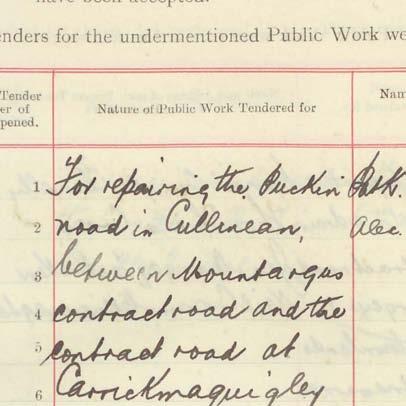 have been accepted.
enders for the undermentioned Public Work we
Tender
er of
pened.
Nature of Public Work Tendered for
Nam
1 For repairing the Puckin Patk.
2 road in Cullinean, Alec.
3 between Mountargus
4 contract road and the
5 contract road at
6 Carrickmaquigley